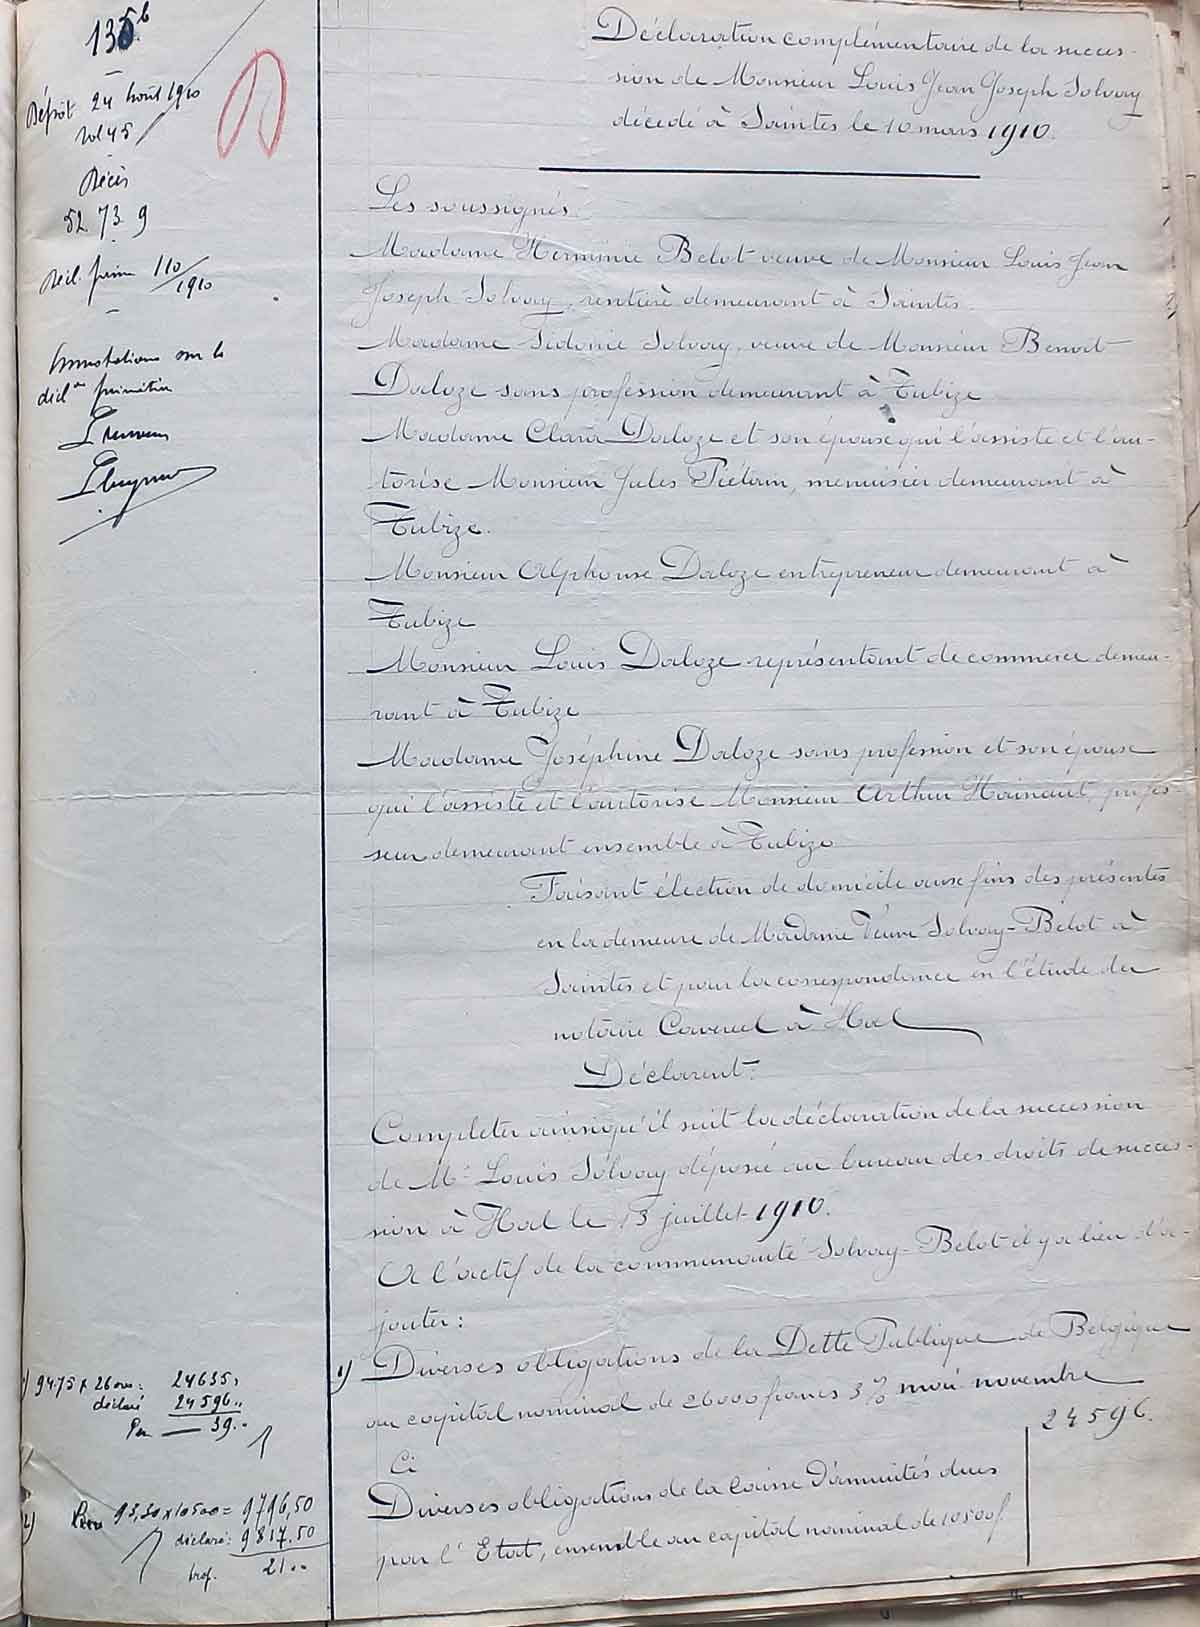 135b
Dépôt 24 Août 1910
vol 45
Décès
52 73 9
Décl. prim 110/1910
Annotations sur la
décl.on primitive
Déclaration complémentaire de la succes-
sion de Monsieur Louis Jean Joseph Solvay
décédé à Saintes le 10 mars 1910.
Les soussignés:
Madame Herminie Belot veuve de Monsieur Louis Jean
Joseph Solvay, rentière demeurant à Saintes.
Madame Sidonie Solvay, veuve de Monsieur Benoit
Daloze sans profession demeurant à Tubize
Madame Clara Daloze et son épouse qui l'assiste et l'au-
torise Monsieur Jules Piétain, menuisier demeurant à
Tubize.
Monsieur Alphonse Daloze entrepreneur demeurant à
Tubize
Monsieur Louis Daloze représentant de commerce demeu-
rant à Tubize
Madame Joséphine Daloze sans profession et son épouse
qui l'assiste et l'autorise Monsieur Arthur Hainaut, profes-
seur demeurant ensemble à Tubize
Faisant élection de domicile aux fins des présentes
en la demeure de Madame Veuve Solvay-Belot à
Saintes et pour la correspondance en l'étude du
notaire à Hal
Déclarent:
Completer ainsi qu'il suit la déclaration de la succession
de Mr Louis Solvay déposée au bureau des droits de succes-
sion à Hal le 13 juillet 1910.
A l'actif de la communauté Solvay-Belot il y a lieu d'a-
jouter:
1) Diverses obligations de la Dette Publique de Belgique
au capital nominal de 26000 francs 3% mai novembre
Ci
24596.
Diverses obligations de la Caisse d'annuités dues
par l'Etat, ensemble au capital nominal de 10500 f.
1) 94.75 x 26000: 24635,
déclaré 24596,,
39.,
2) 93,30 x 10500 = 9796,50
déclaré: 9817.50
21,,